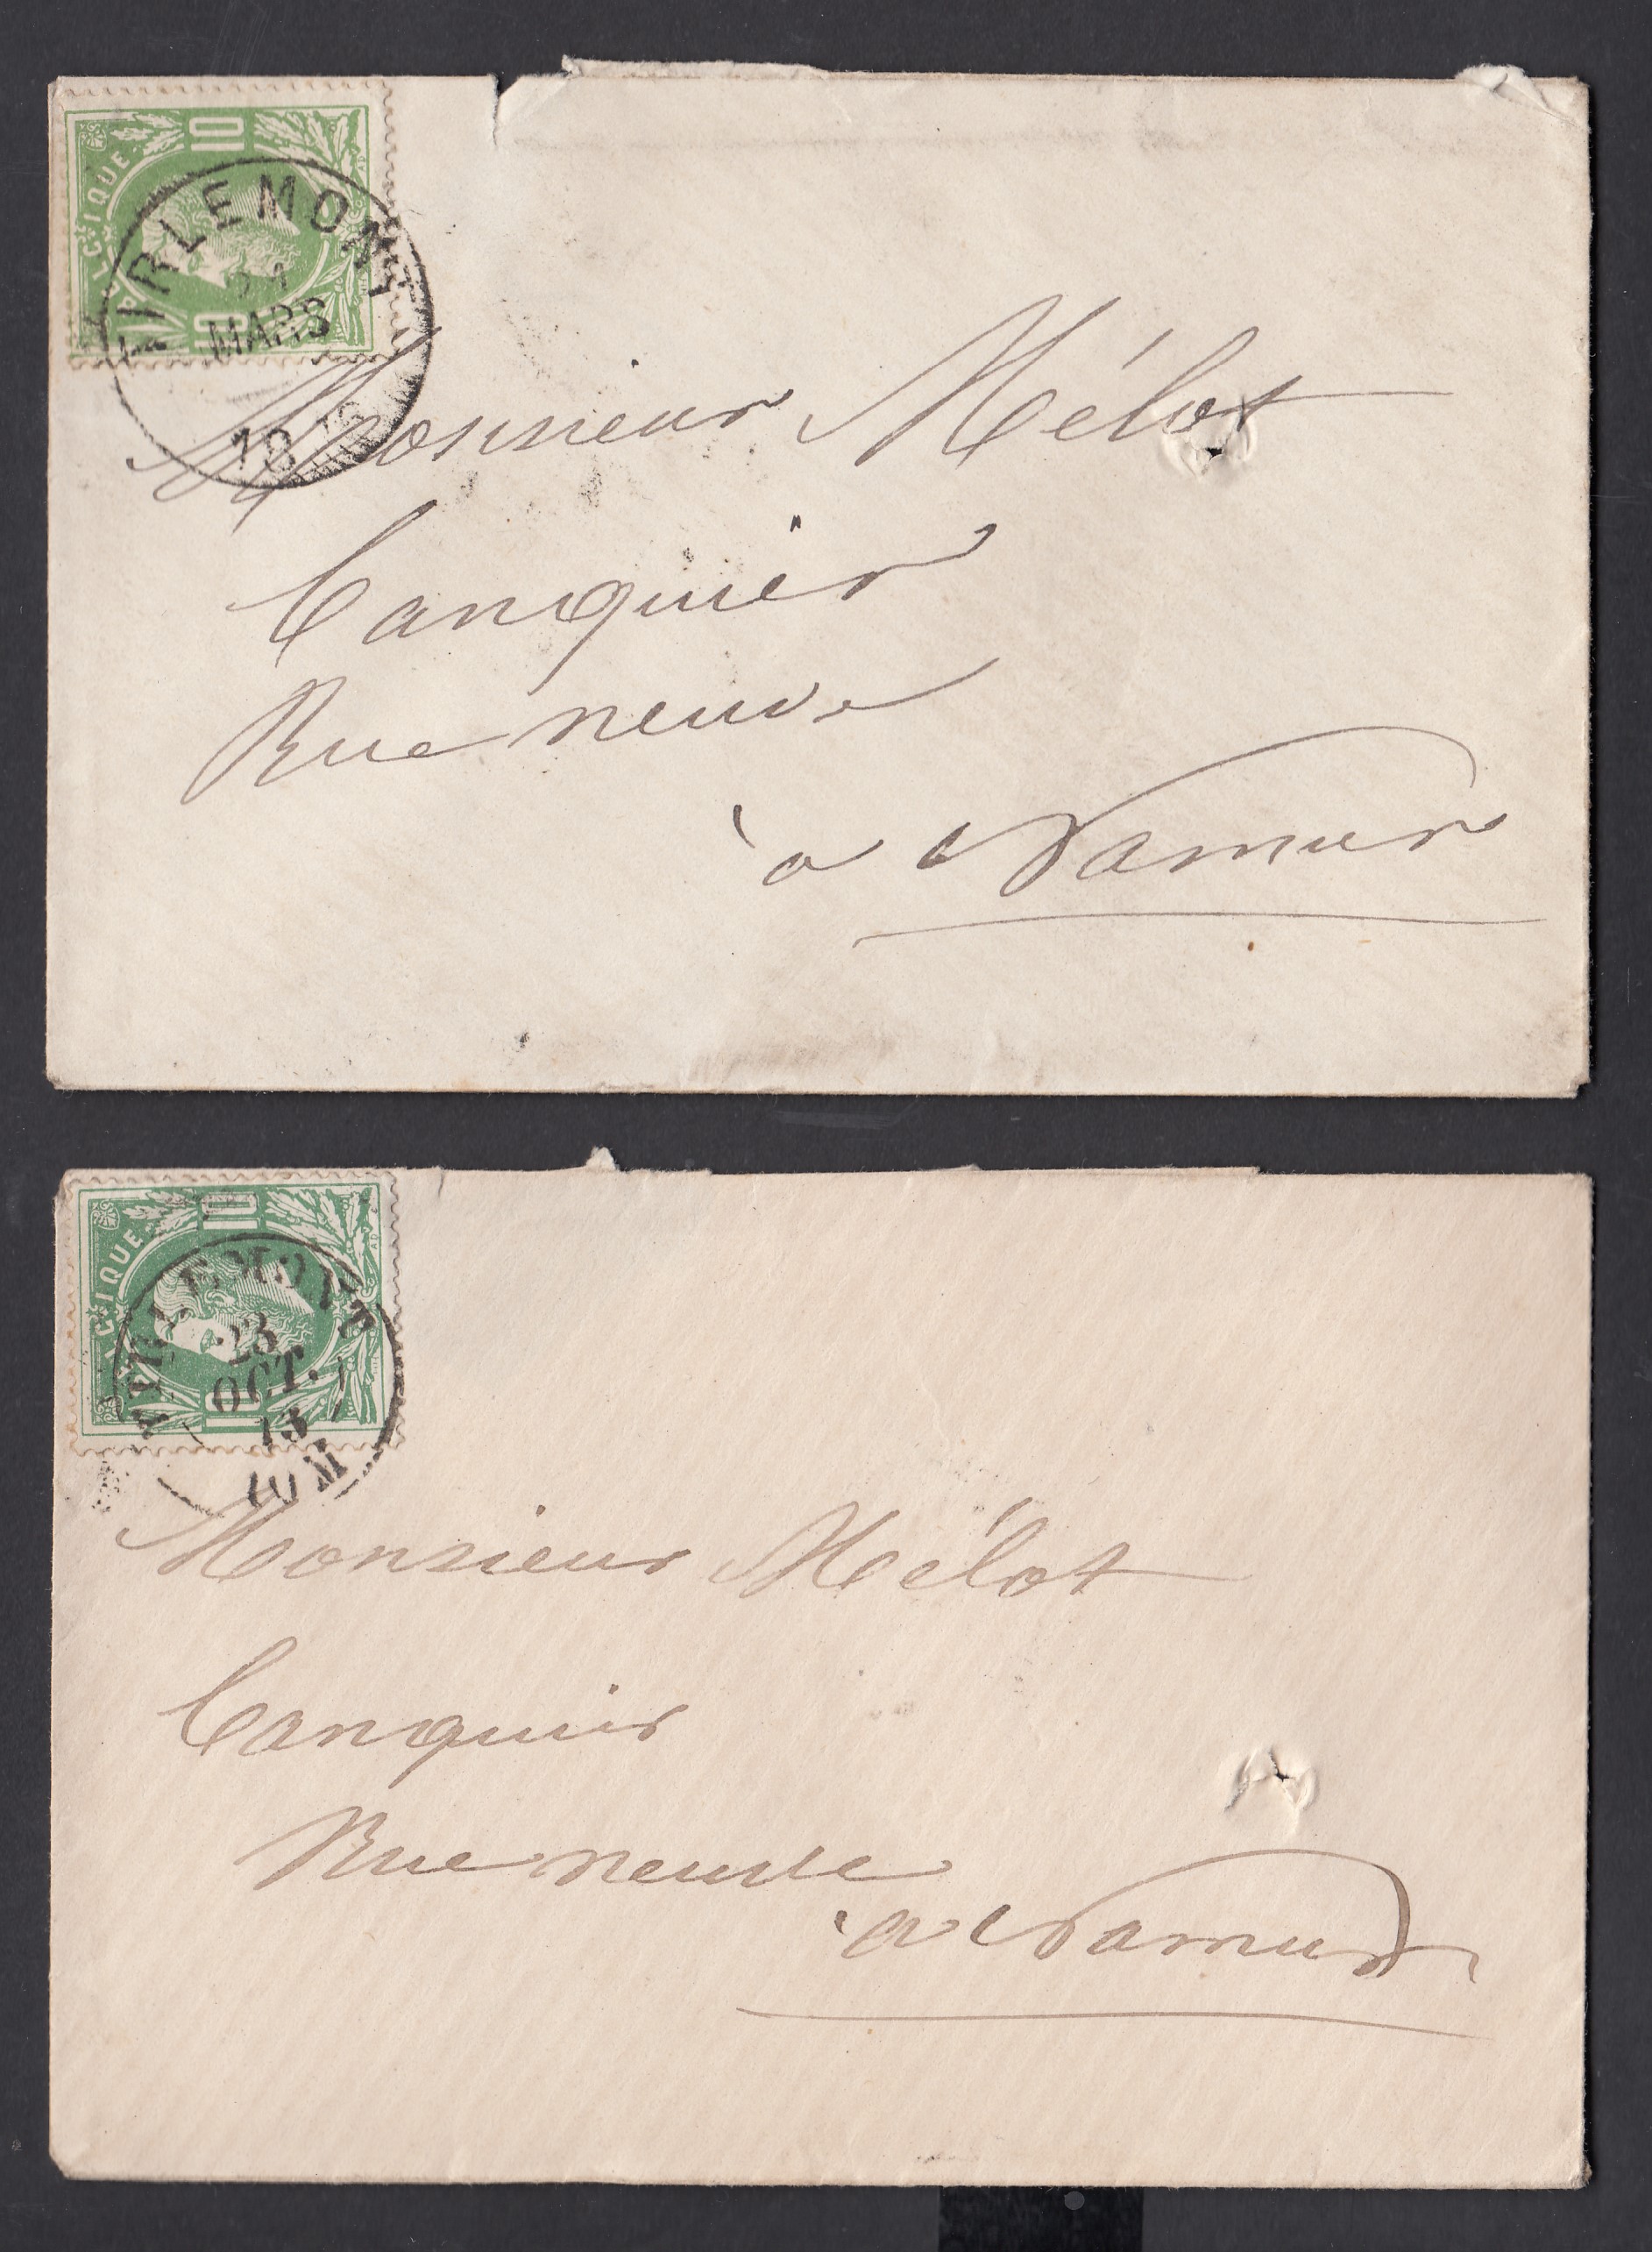 10
BELGIQUE
10
TIRLEMONT
MARS
18
Monsieur Mélot
banquier
Rue neuve
à Namur
10
BELGIQUE
10
TIRLEMONT
23
OCT.
10 M
Monsieur Mélot
banquier
Rue neuve
à Namur